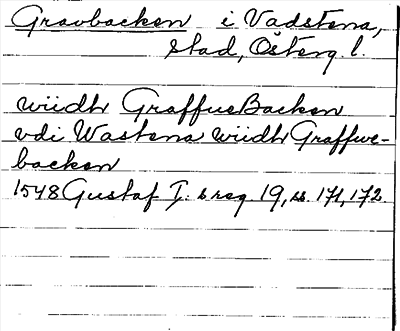 Gravbacken i Vadstena,
stad, Österg. l.
wiidh GraffueBacken
vdi Wastena wiidh Graffwe-
backen
1548 Gustaf I:s reg. 19, ss. 171, 172